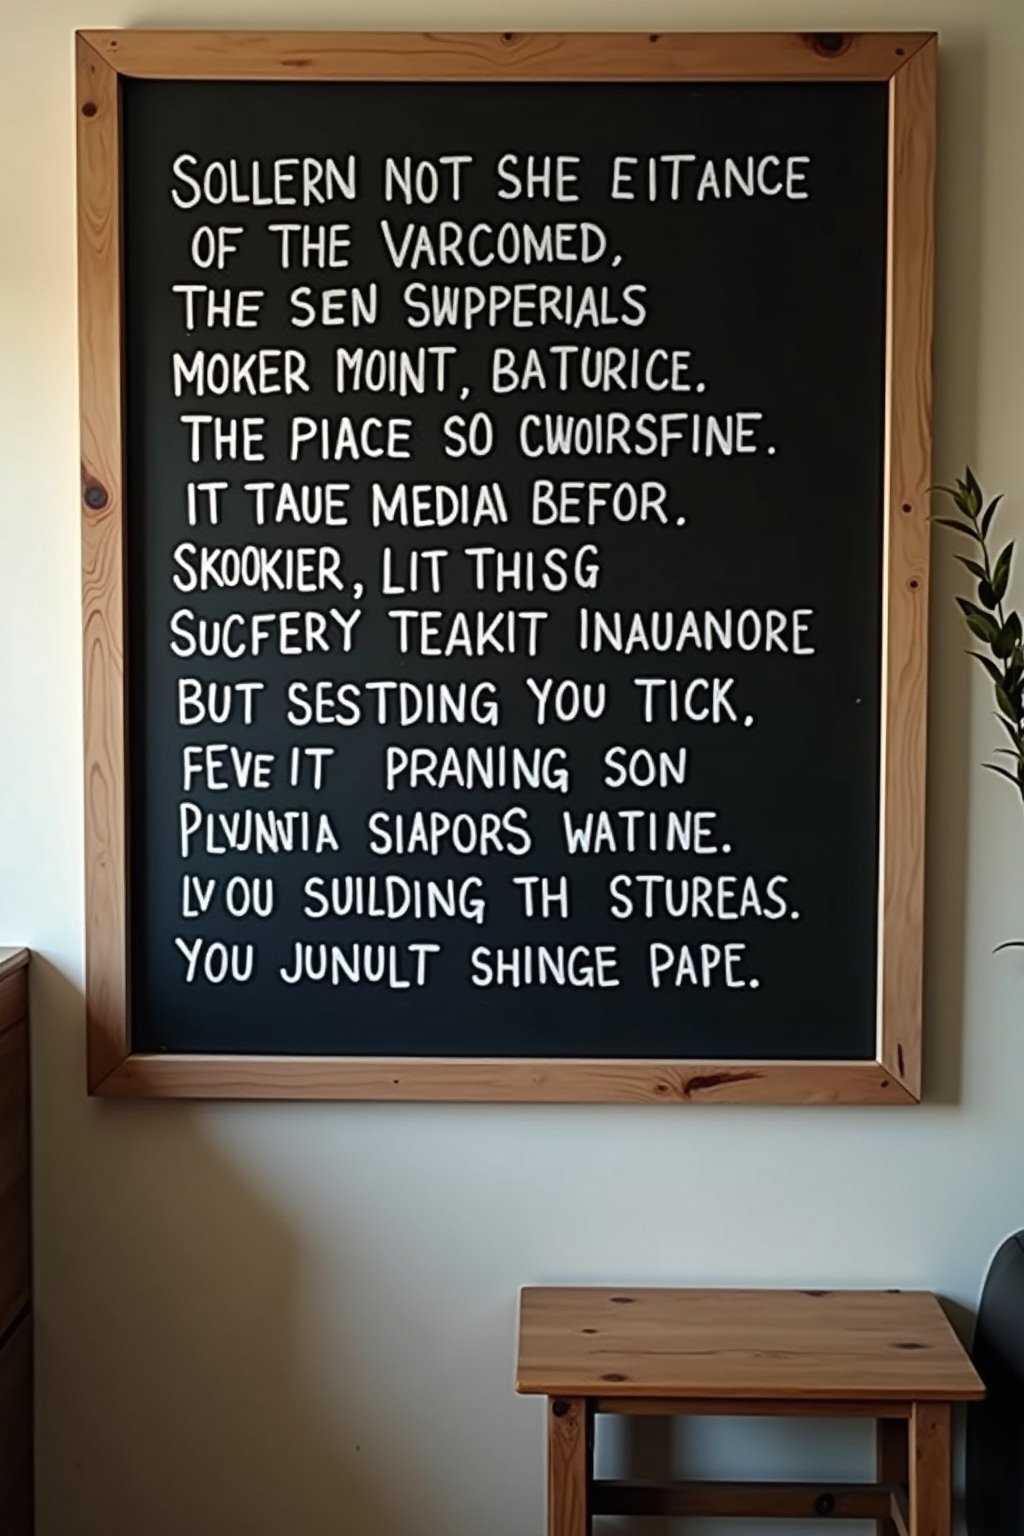 SOLLERN NOT SHE EITANCE
OF THE VARCOMED,
THE SEN SWPPERIALS
MOKER MOINT, BATURICE.
THE PIACE SO CWOIRSFINE.
IT TAUE MEDIA BEFOR.
SKOOKIER, LIT THISG
SUCFERY TEAKIT INAUANORE
BUT SESTDING YOU TICK,
FEVE IT PRANING SON
SIAPORS WATINE.
LVOU SUILDING TH STUREAS.
YOU JUNULT SHINGE PAPE.